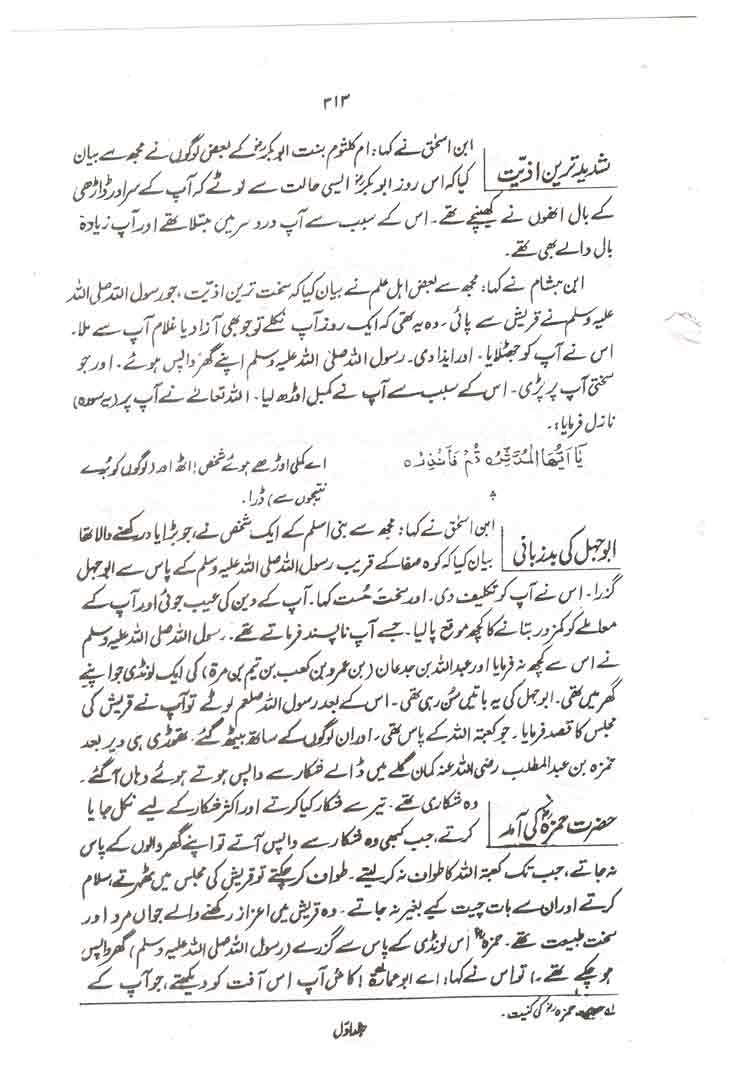 ۳۱۳
شدید ترین اذیّت
ابن اسحٰق نے کہا: ام کلثوم بنت ابوبکرؓ کے بعض لوگوں نے مجھ سے بیان
کیا کہ اس روز ابوبکرؓ ایسی حالت سے لوٹے کہ آپ کے سر اور ڈاڑھی
کے بال انھوں نے کھینچے تھے۔ اس کے سبب سے آپ درد سر میں مبتلا تھے اور آپ زیادہ
بال والے بھی تھے۔
ابن ہشام نے کہا: مجھ سے بعض اہل علم نے بیان کیا کہ سخت ترین اذیّت، جو رسول اللہ صلی اللہ
علیہ وسلم نے قریش سے پائی۔ وہ یہ تھی کہ ایک روز آپ نکلے تو جو بھی آزاد یا غلام آپ سے ملا۔
اس نے آپ کو جھٹلایا۔ اور ایذا دی۔ رسول اللہ صلی اللہ علیہ وسلم اپنے گھر واپس ہوئے۔ اور جو
سختی آپ پر پڑی۔ اس کے سبب سے آپ نے کمبل اوڑھ لیا۔ اللہ تعالےٰ نے آپ پر (یہ سورہ)
نازل فرمایا:۔
یَاۤ اَیُّھَا الْمُدَّثِّرُ ہ قُمْ فَاَنْذِرْ ہ
اے کملی اوڑھے ہوئے شخص! اٹھ اور (لوگوں کو بُرے
نتیجوں سے) ڈرا۔
ابوجہل کی بدزبانی
ابن اسحٰق نے کہا: مجھ سے بنی اسلم کے ایک شخص نے، جو بڑا یاد رکھنے والا تھا
بیان کیا کہ کوہ صفا کے قریب رسول اللہ صلی اللہ علیہ وسلم کے پاس سے ابوجہل
گزرا۔ اس نے آپ کو تکلیف دی۔ اور سخت سُست کہا۔ آپ کے دین کی عیب جوئی اور آپ کے
معاملے کو کمزور بتانے کا کچھ موقع پا لیا۔ جسے آپ ناپسند فرماتے تھے۔ رسول اللہ صلی اللہ علیہ وسلم
نے اس سے کچھ نہ فرمایا اور عبد اللہ بن جدعان (بن عمرو بن کعب بن تیم بن مرۃ) کی ایک لونڈی جو اپنے
گھر میں تھی۔ ابوجہل کی یہ باتیں سُن رہی تھی۔ اس کے بعد رسول اللہ صلعم لوٹے تو آپ نے قریش کی
مجلس کا قصد فرمایا۔ جو کعبۃ اللہ کے پاس تھی۔ اور ان لوگوں کے ساتھ بیٹھ گئے۔ تھوڑی ہی دیر بعد
حمزہ بن عبد المطلب رضی اللہ عنہ کمان گلے میں ڈالے شکار سے واپس ہوتے ہوئے وہاں آ گئے۔
حضرت حمزہؓ کی آمد
وہ شکاری تھے۔ تیر سے شکار کیا کرتے اور اکثر شکار کے لیے نکل جایا
کرتے، جب کبھی وہ شکار سے واپس آتے تو اپنے گھر والوں کے پاس
نہ جاتے، جب تک کعبۃ اللہ کا طواف نہ کر لیتے۔ طواف کر چکتے تو قریش کی مجلس میں ٹھہرتے، سلام
کرتے اور ان سے بات چیت کیے بغیر نہ جاتے۔ وہ قریش میں اعزاز رکھنے والے جواں مرد اور
سخت طبیعت تھے۔ حمزہؓ اُس لونڈی کے پاس سے گزرے (رسول اللہ صلی اللہ علیہ وسلم) گھر واپس
ہو چکے تھے۔) تو اس نے کہا: اے ابو عمارہ! کاش آپ اس آفت کو دیکھتے، جو آپ کے
حمزہؓ کی کنیت۔
جلد اوّل